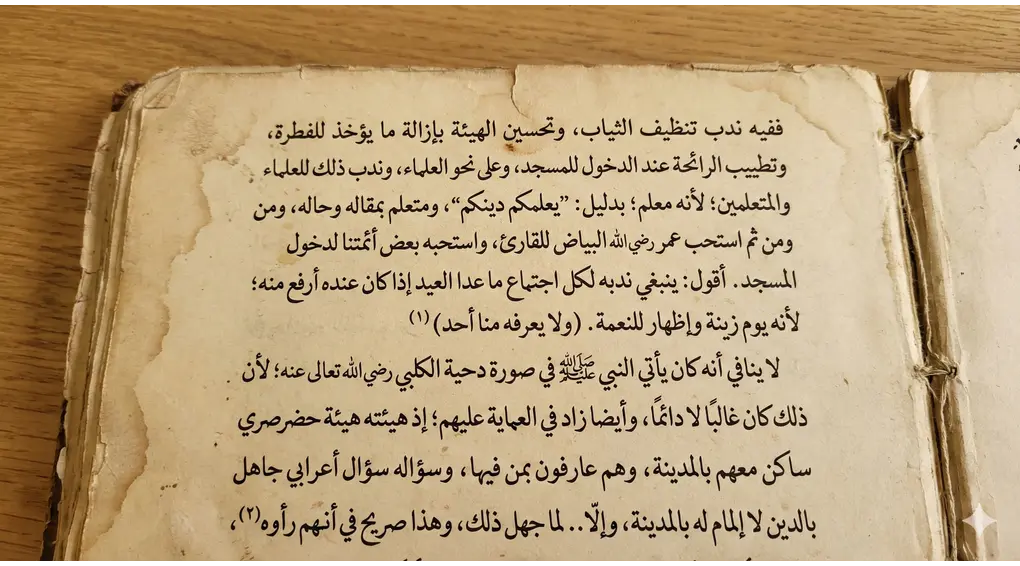 ففيه ندب تنظيف الثياب، وتحسين الهيئة بإزالة ما يؤخذ للفطرة،
وتطييب الرائحة عند الدخول للمسجد، وعلى نحو العلماء، وندب ذلك للعلماء
والمتعلمين؛ لأنه معلم؛ بدليل: ”يعلمكم دينكم“، ومتعلم بمقاله وحاله، ومن
ومن ثم استحب عمر رضي الله البياض للقارئ، واستحبه بعض أئمتنا لدخول
المسجد. أقول: ينبغي ندبه لكل اجتماع ما عدا العيد إذا كان عنده أرفع منه؛
لأنه يوم زينة وإظهار للنعمة. (ولا يعرفه منا أحد) (١)
لا ينافي أنه كان يأتي النبي ﷺ في صورة دحية الكلبي رضي الله تعالى عنه؛ لأن
ذلك كان غالبًا لا دائمًا، وأيضا زاد في العماية عليهم؛ إذ هيئته هيئة حضرصري
ساكن معهم بالمدينة، وهم عارفون بمن فيها، وسؤاله سؤال أعرابي جاهل
بالدين لا إلمام له بالمدينة، وإلّا.. لما جهل ذلك، وهذا صريح في أنهم رأوه(٢)،